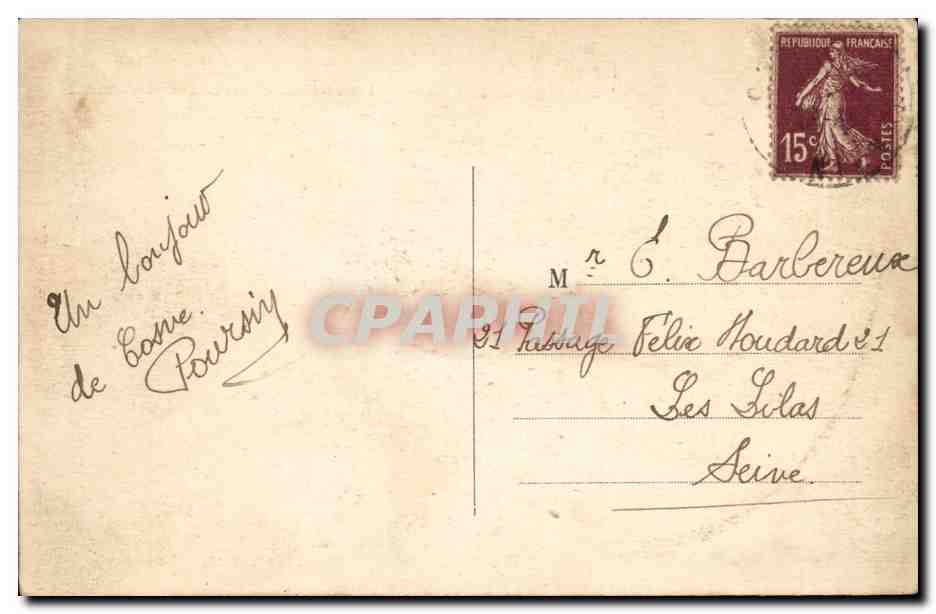 Un bonjour
de Cosne.
Poursin
REPUBLIQUE FRANÇAISE
15c
POSTES
Mr E. Barbereux
21 Passage Félix Houdard 21
Les Lilas
Seine.
CPARAMA